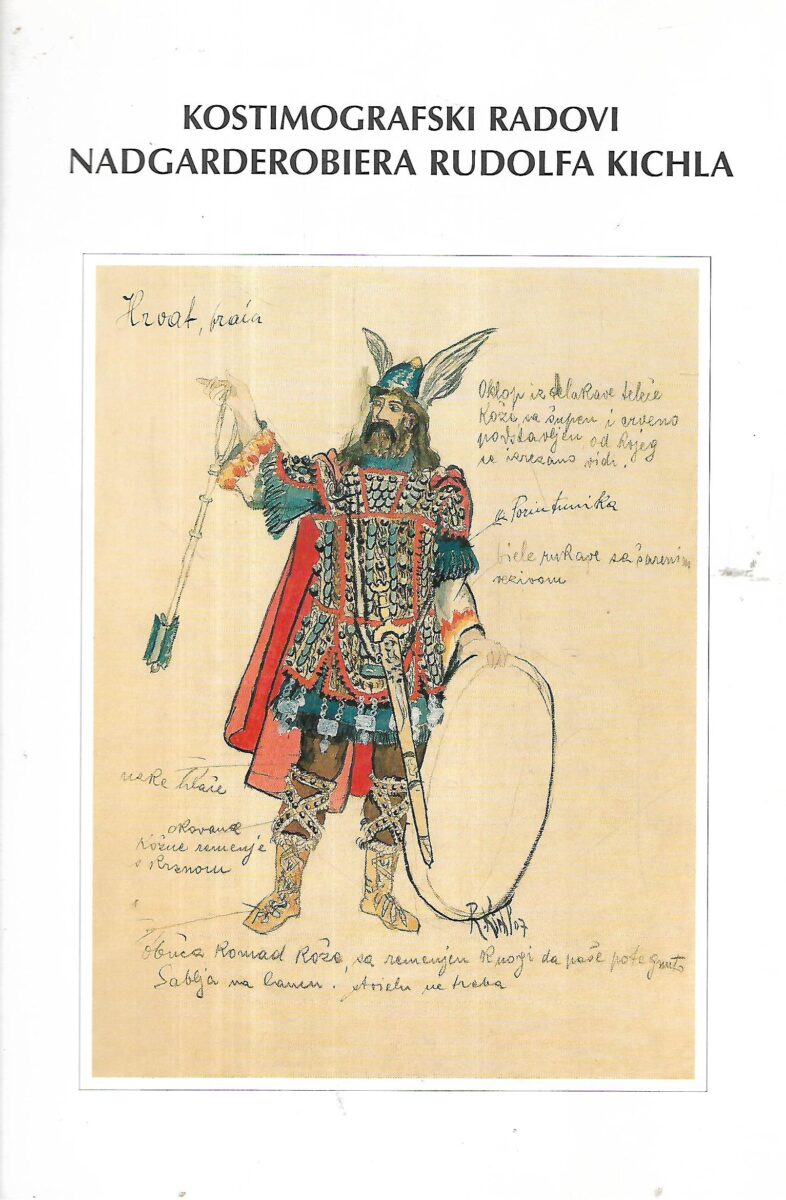 KOSTIMOGRAFSKI RADOVI
NADGARDEROBIERA RUDOLFA KICHLA
Hrvat, braća
Oklop iz delakave teleće
kože sa šupen i crveno
podstavljen od kojeg
se izrezano vidi.
Porin tunika
biele rukave sa šarenim
vezivom
uske hlače
okovane
kožne remenje
s krznom
R. Kichl 07
Obuća komad kože, sa remenjem k nogi da paše potegnuto
Sablja na lancu. Strielu ne treba